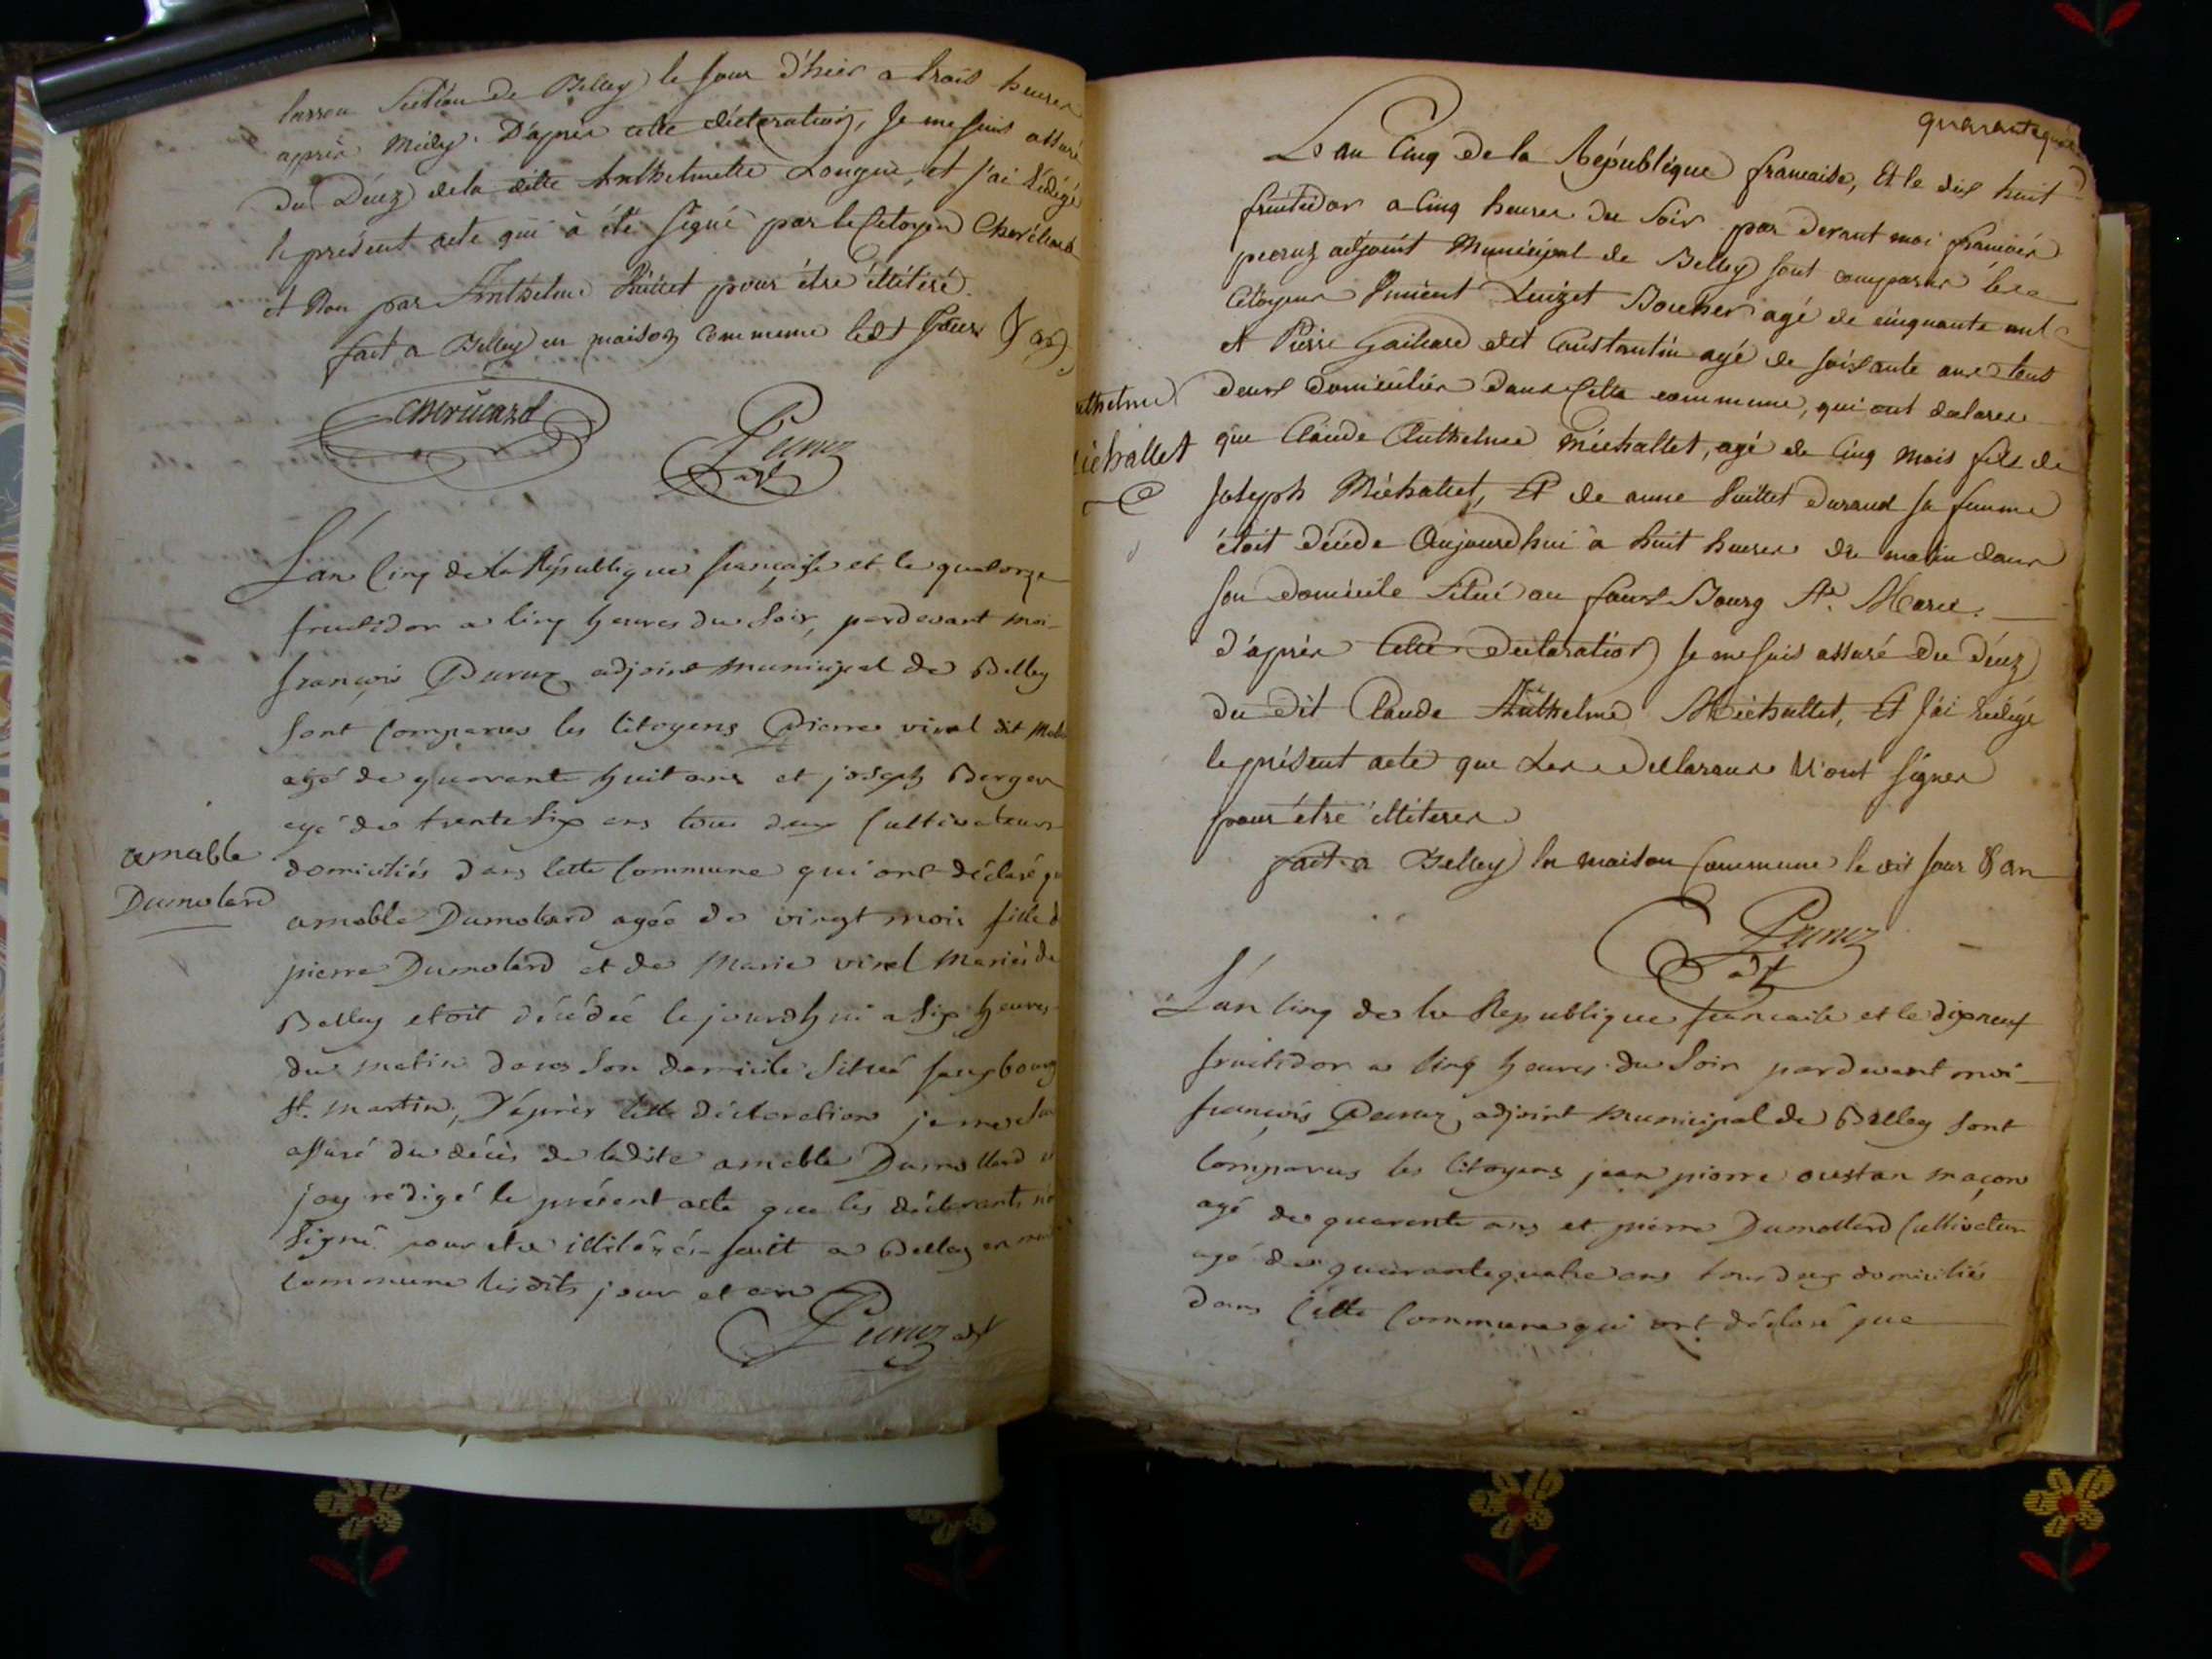 lassou Section de Belley le jour d'hier a trois heures
après Midy. D'après cette déclaration, Je me suis assuré
du Décez de la ditte Anthelmette Longue, et j'ai rédigé
le présent acte qui à été signé par le Citoyen
et Non par Anthelme Puittet pour être illitéré.
fait a Belley en maison commune ledt jour & an
Peruz
adt
L'an Cinq de la République française et le quatorze
fructidor a Cinq heures du soir, pardevant moi
françois Peruz adjoint municipal de Belley
sont comparus les Citoyens Pierre vinel dit
agé de quarante huit ans et joseph Berger
agé de trente six ans tous deux Cultivateurs
amable
Dumolard
domiciliés dans cette Commune qui ont déclaré que
amable Dumolard agée de vingt mois fille d
pierre Dumolard et de Marie vinel Mariés de
Belley etoit décédée le jourdhui a six heures
du matin dans son domicile situé fauxbourg
St. martin, D'après cette déclaration je me suis
assuré du décès de ladite amable Dumollard
j'ay rédigé le présent acte que les déclarants n'o
signé pour etre illitérés fait a Belley en
Commune lesdits jour et an
Peruz adt
quarantequa
L'an Cinq de la République francaise, Et le dix huit
fructidor a Cinq heures du Soir par devant moi francois
peruz adjoint Municipal de Belley sont comparus les
Citoyens Vincent Luizet Boucher agé de cinquante ans
et Pierre Gailard dit Constantin agé de soixante ans tous
deux domiciliés dans Cette commune, qui ont declarer
nthelme
iehallet
que Claude Anthelme Miehallet, agé de Cinq mois fils de
Joseph Miehallet, Et de anne Puittet Durand sa femme
étoit décédé Aujourdhui à huit heures du matin dans
son domicile situé au faux Bourg St. Marie.
d'après Cette declaration Je me suis assuré du décez
du dit Claude Anthelme Miehallet, Et j'ai rédigé
le présent acte que Les declarans n'ont signer
pour être illiterer
fait a Belley En maison Commune le dit jour & an
Peruz
adt
L'an Cinq de la Republique francaise et le dix neuf
fructidor a Cinq heures du Soir pardevant moi
françois Peruz adjoint municipal de Belley sont
Comparus les Citoyens jean pierre oustan maçon
agé de quarante ans et pierre Dumollard Cultivateur
agé de quarantequatre ans tous deux domiciliés
dans Cette Commune qui ont déclaré que